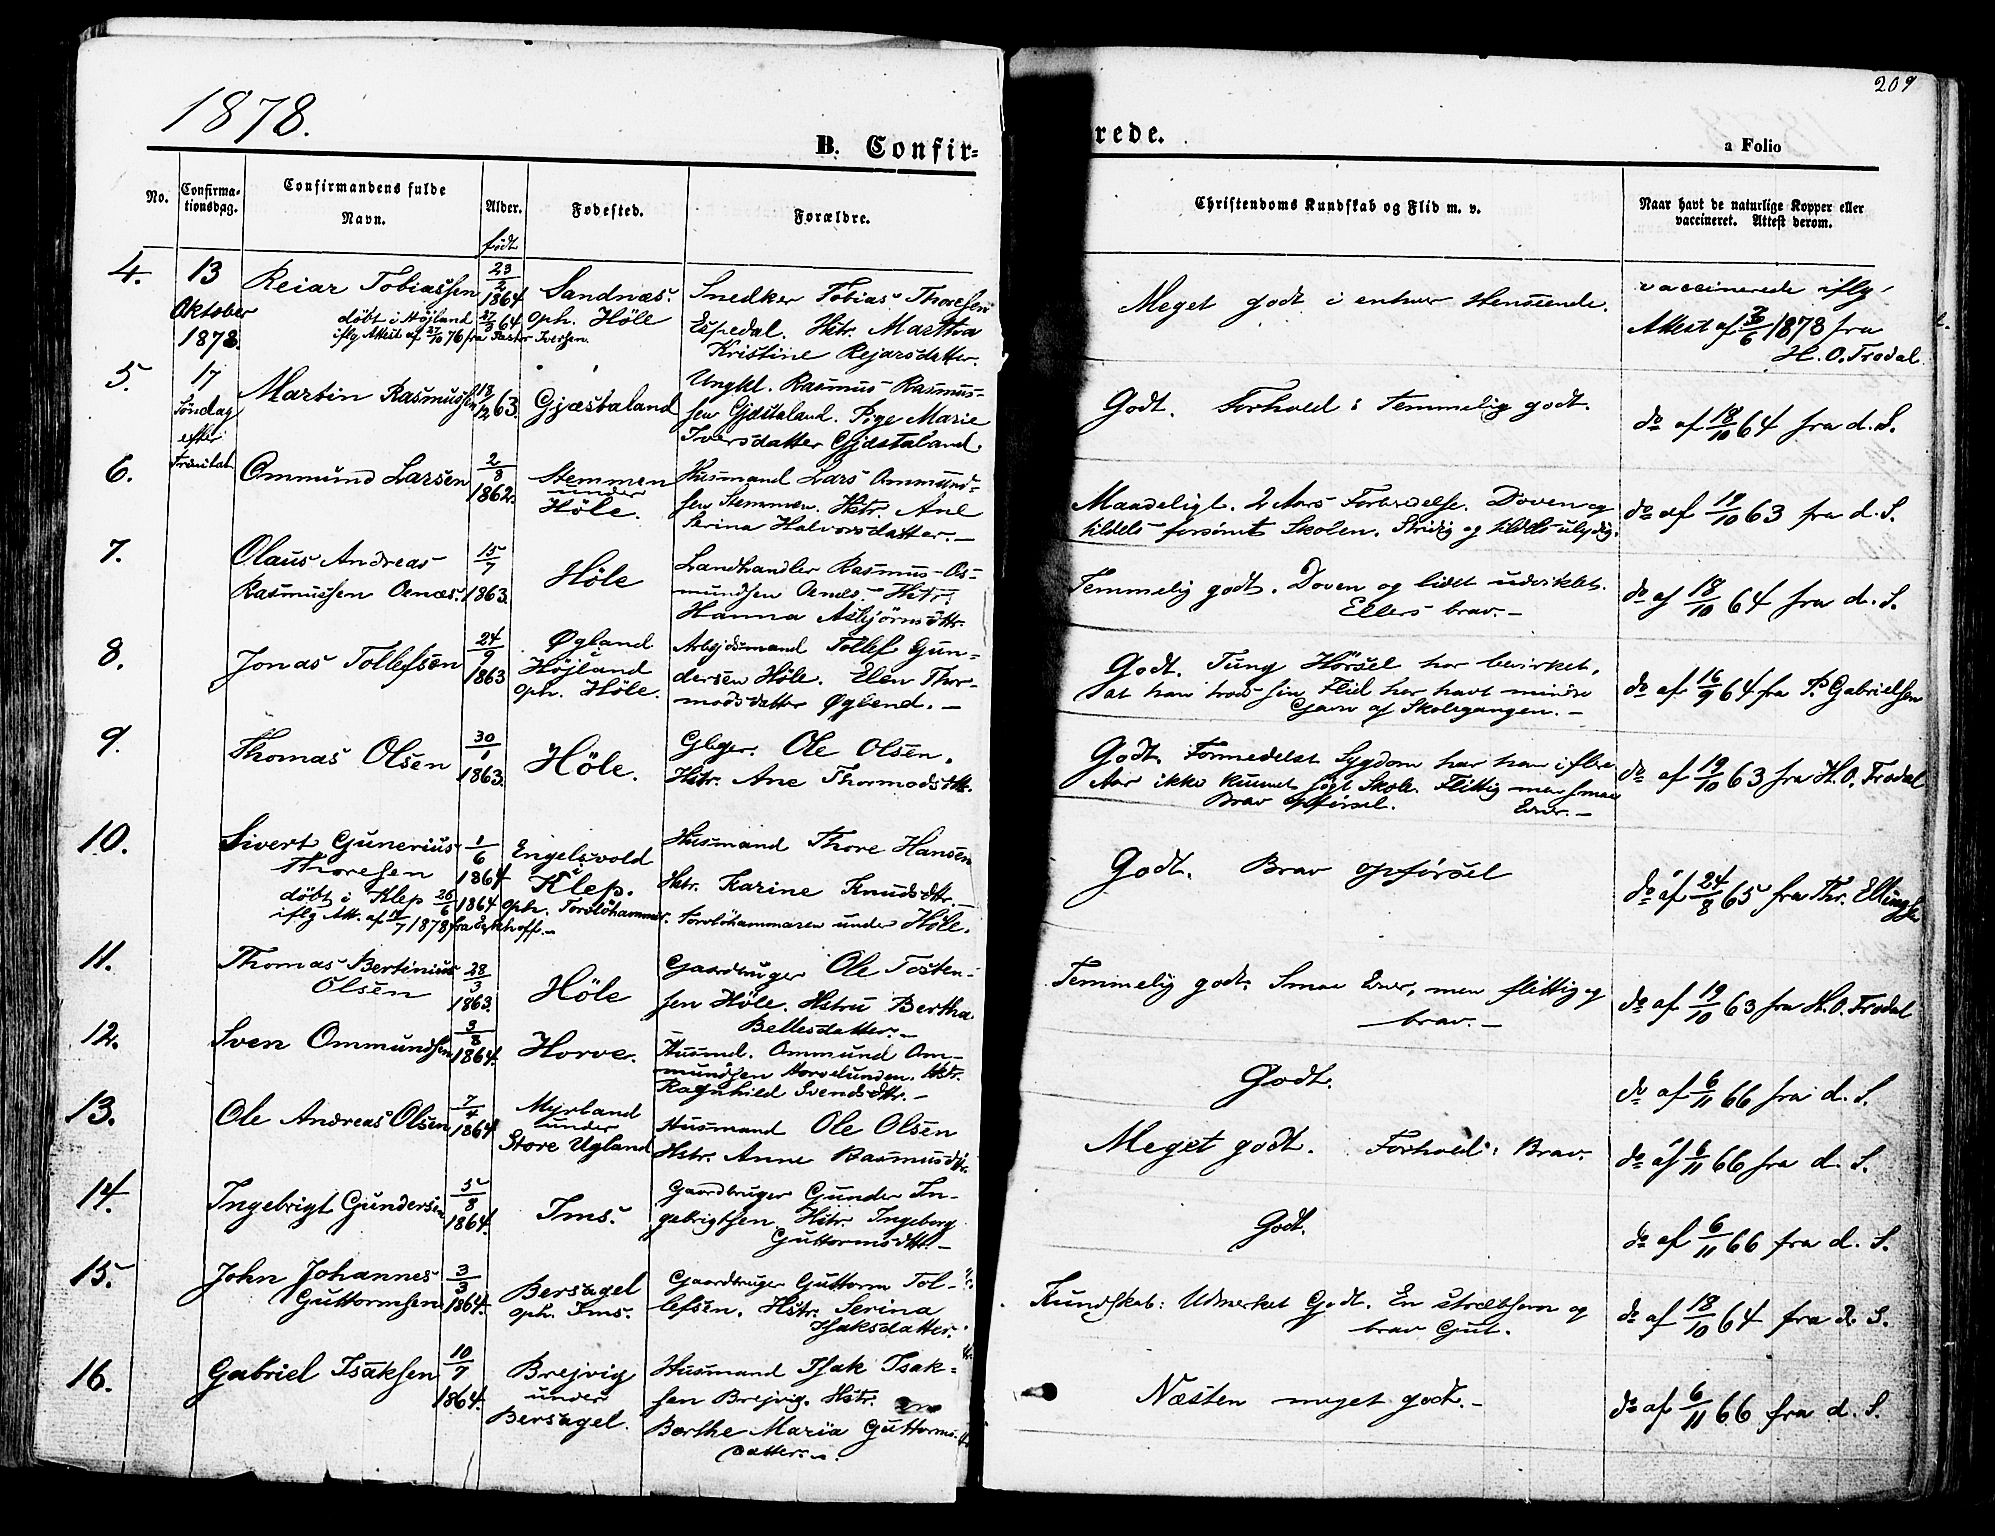 1878.
B. Confir-
No.
Confirma-
tionsdag.
Confirmandens fulde
Navn.
Alder.
Fødested.
Forældre.
født
4.
13
Oktober
1878.
17
Søndag
efter
Trinitat.
Reiar Tobiassen
døbt i Højland 27/3 64.
iflg Attest af 27/10 76 fra Pastor Iversen.
23/2
1864
Sandnæs.
oph. Höle
Snedker Tobias Thoresen
Espedal. Hstr. Martha
Kristine Rejarsdatter.
5.
Martin Rasmussen
13/12 63.
Gjæstaland
Ungkl. Rasmus Rasmus-
sen Gjæstaland. Pige Marie
Iversdatter Gjæstaland.
6.
Ommund Larsen
2/8
1862.
Stemmen
under
Höle.
Husmand Lars Ommund-
sen Stemmen. Hstr. Ane
Serina Halvorsdatter.—
7.
Olaus Andreas
Rasmussen Oenæs.
15/7
1863.
Höle
Landhandler Rasmus Os-
mundsen Oenæs. Hstr.
Hanna Asbjörnsdttr.
8.
Jonas Tollefsen
24/9
1863
Øgland
i
Højland
oph. Höle.
Arbejdsmand Tollef Gun-
dersen Höle. Elen Thor-
modsdatter Øglend.—
9.
Thomas Olsen
30/1
1863.
Höle.
Gbger. Ole Olsen.
Hstr. Ane Thormodsdttr.
10.
Sivert Gunerius
Thoresen
døbt i Klep 26/6 1864
iflg Att. af 14/7 1878 fra Dyrhoff.—
1/6
1864
Engelsvold
i
Klep.
oph. Torslöhammer.
Husmand Thore Hansen
Hstr. Karine Knudsdttr.—
Torslöhammaren under Höle.
11.
Thomas Bertinius
Olsen
28/3
1863.
Höle
Gaardbruger Ole Tosten-
sen Höle. Hstru Bertha
Bellesdatter.—
12.
Sven Ommundsen
3/8
1864.
Horve.
Husmd. Ommund Om-
mundsen Horvelunden. Hstr.
Ragnhild Svendsdttr.—
13.
Ole Andreas Olsen
7/4
1864.
Myrland
under
Store Ugland
Husmand Ole Olsen
Hstr. Anne Rasmusdttr.
14.
Ingebrigt Gundersen
5/8
1864.
Ims.
Gaardbruger Gunder In-
gebrigtsen Hstr. Ingeborg
Guttormsdttr.—
15.
John Johannes
Guttormsen
3/3
1864.
Bersagel
oph. Ims.
Gaardbruger Guttorm Tol-
lefsen. Hstr. Serina
Isaksdatter.
16.
Gabriel Isaksen
10/7
1864.
Brejvig
under
Bersagel.
Husmand Isak Isak-
sen Brejvig. Hstr.
Berthe Maria Guttorms-
datter.—
209
rede.
a Folio
Christendoms Kundskab og Flid m. v.
Naar havt de naturlige Kopper eller
vaccineret. Attest derom.
Meget godt i enhver Henseende.
vaccinerede iflg
Attest af 26/6 1878 fra
H. O. Frodal.
Godt. Forhold: Temmelig godt.
do af 18/10 64 fra d. S.
Maadeligt. 2 Aars Forberedelse. Doven og
tildels forsömt Skolen. Stridig og tildels ulydig.
do af 19/10 63 fra d. S.
Temmelig godt. Doven og lidet udviklet.
Ellers brav.—
do af 18/10 64 fra d. S.
Godt. Tung Hörsel har bevirket,
at han trods sin Flid har havt mindre
Gavn af Skolegangen.—
do af 16/9 64 fra P. Gabrielsen
Godt. Formedelst Sygdom har han i flere
Aar ikke kunnet sögt Skole. Flittig men smaa
Brav opförsel. Evner.—
do af 19/10 63 fra H. O. Frodal
Godt. Brav opförsel
do af 24/8 65 fra Thr. Ellingsen
Temmelig godt. Smaa Evner, men flittig og
brav.—
do af 19/10 63 fra H. O. Frodal
Godt.
do af 6/11 66 fra d. S.
Meget godt. Forhold: Brav.
do af 6/11 66 fra d. S.
Godt.
do af 6/11 66 fra d. S.
Kundskab: Udmerket Godt. En stræbsom og
brav Gut.
do af 18/10 64 fra d. S.
Næsten meget godt.—
do af 6/11 66 fra d. S.